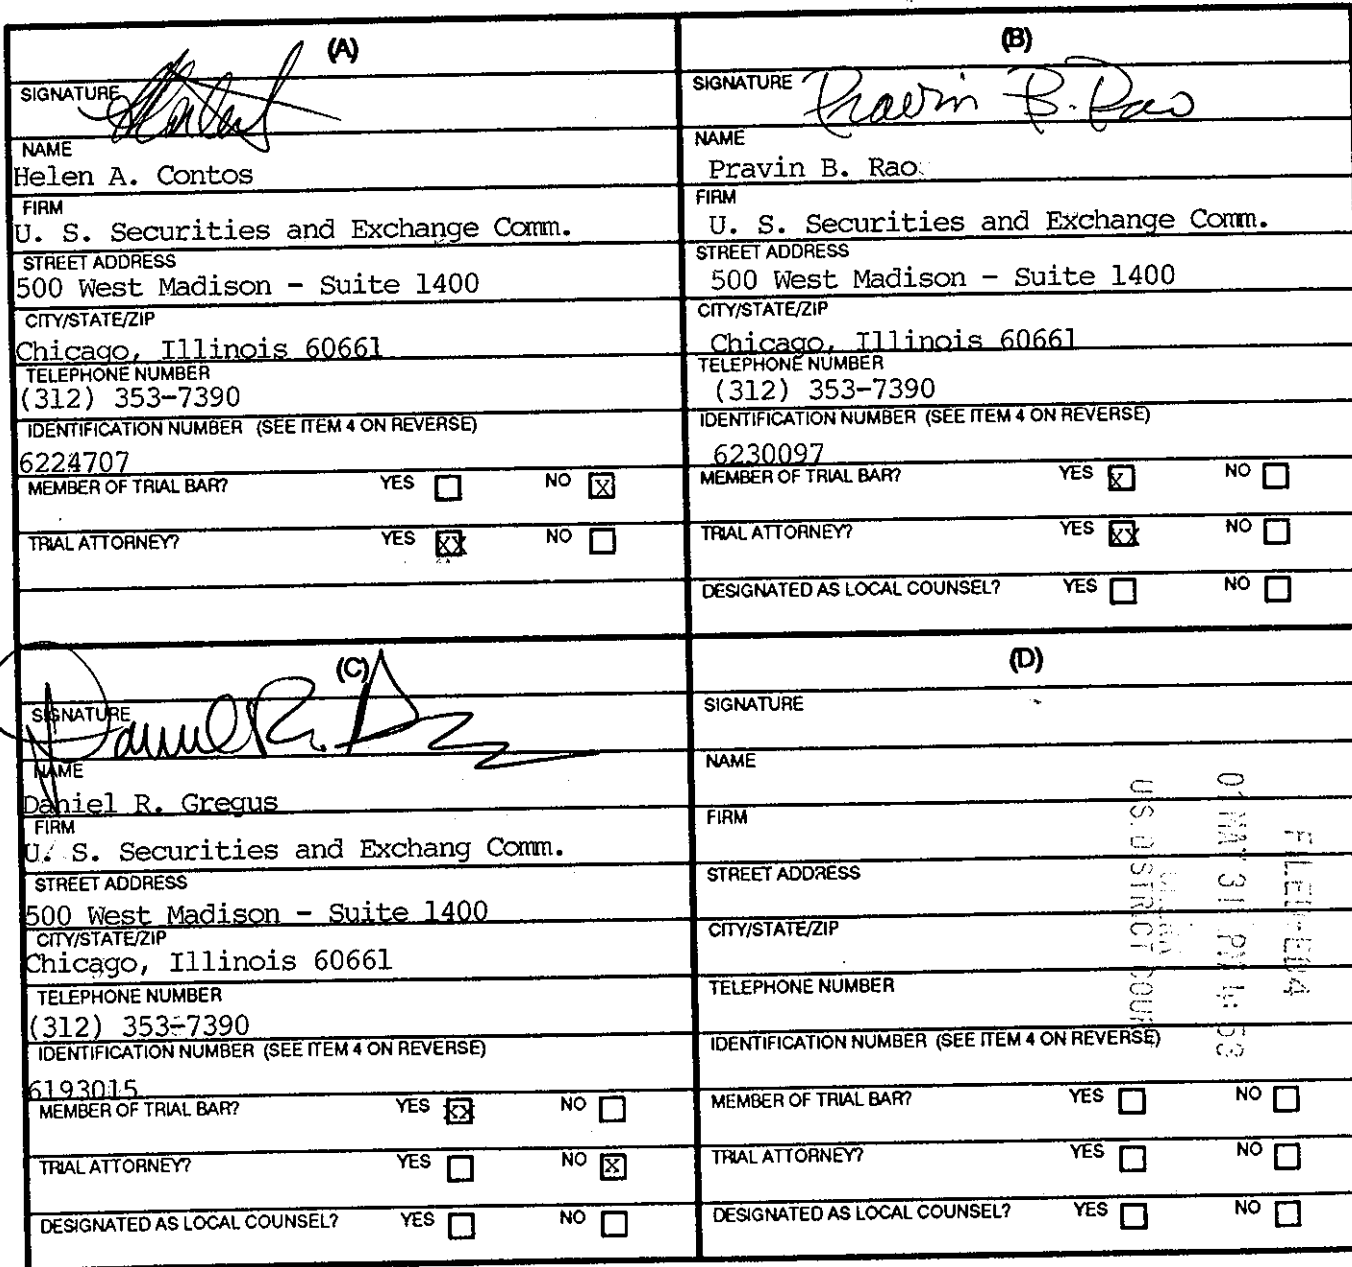 (A)
SIGNATURE
NAME
Helen A. Contos
FIRM
U. S. Securities and Exchange Comm.
STREET ADDRESS
500 West Madison - Suite 1400
CITY/STATE/ZIP
Chicago, Illinois 60661
TELEPHONE NUMBER
(312) 353-7390
IDENTIFICATION NUMBER (SEE ITEM 4 ON REVERSE)
6224707
MEMBER OF TRIAL BAR? YES NO X
TRIAL ATTORNEY? YES XX NO
(B)
SIGNATURE Pravin B. Rao
NAME
Pravin B. Rao
FIRM
U. S. Securities and Exchange Comm.
STREET ADDRESS
500 West Madison - Suite 1400
CITY/STATE/ZIP
Chicago, Illinois 60661
TELEPHONE NUMBER
(312) 353-7390
IDENTIFICATION NUMBER (SEE ITEM 4 ON REVERSE)
6230097
MEMBER OF TRIAL BAR? YES X NO
TRIAL ATTORNEY? YES XX NO
DESIGNATED AS LOCAL COUNSEL? YES NO
(C)
SIGNATURE Daniel R.
NAME
Daniel R. Gregus
FIRM
U. S. Securities and Exchang Comm.
STREET ADDRESS
500 West Madison - Suite 1400
CITY/STATE/ZIP
Chicago, Illinois 60661
TELEPHONE NUMBER
(312) 353-7390
IDENTIFICATION NUMBER (SEE ITEM 4 ON REVERSE)
6193015
MEMBER OF TRIAL BAR? YES XX NO
TRIAL ATTORNEY? YES NO X
DESIGNATED AS LOCAL COUNSEL? YES NO
(D)
SIGNATURE
NAME
FIRM
STREET ADDRESS
CITY/STATE/ZIP
TELEPHONE NUMBER
IDENTIFICATION NUMBER (SEE ITEM 4 ON REVERSE)
MEMBER OF TRIAL BAR? YES NO
TRIAL ATTORNEY? YES NO
DESIGNATED AS LOCAL COUNSEL? YES NO
FILED-ED4
01 MAY 31 PM 4:53
U.S. DISTRICT COURT